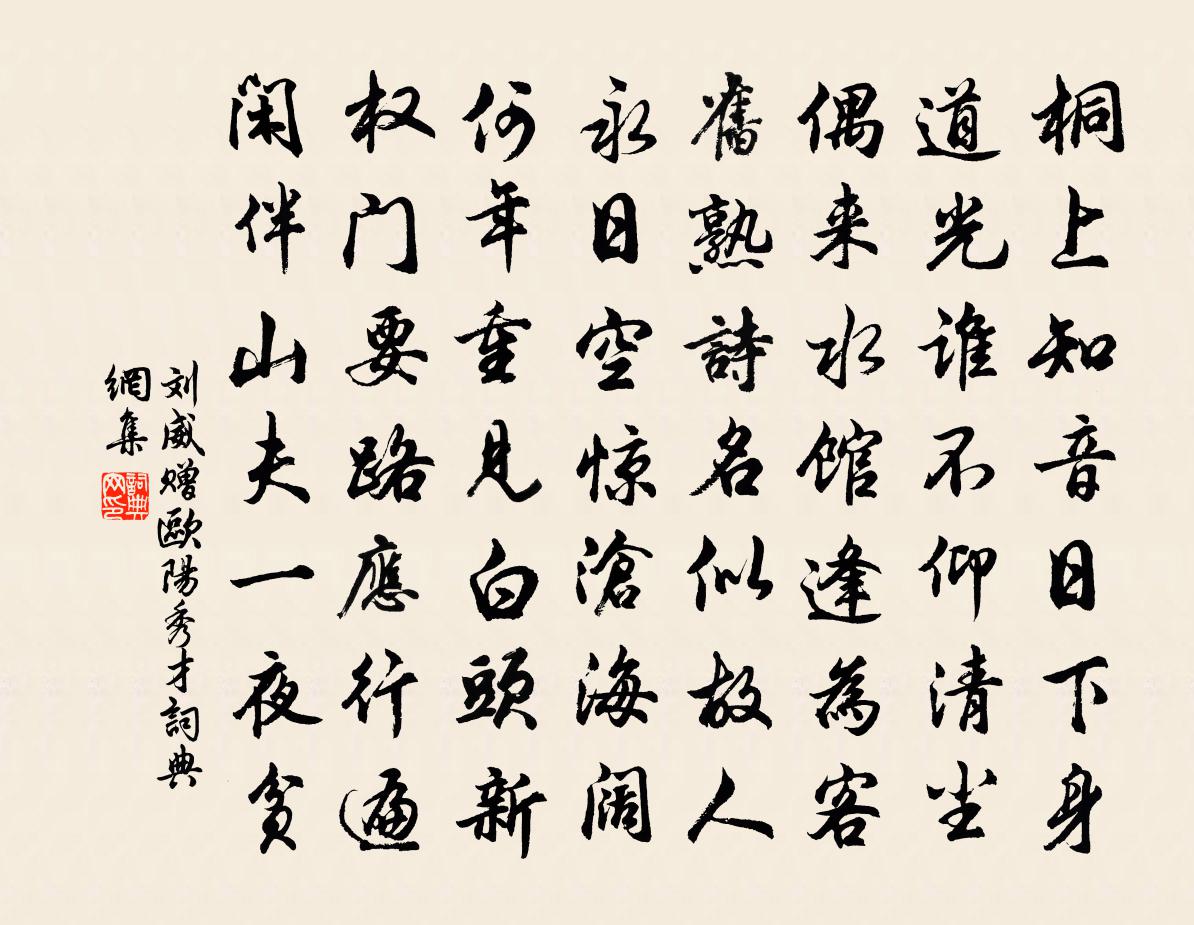 桐上知音日下身
道光谁不仰清尘
偶来水馆逢為客
舊熟詩名似故人
永日空惊滄海阔
何年重見白頭新
权门要路應行遍
闲伴山夫一夜貧
刘威赠歐陽秀才詞典
網集
詞典网印